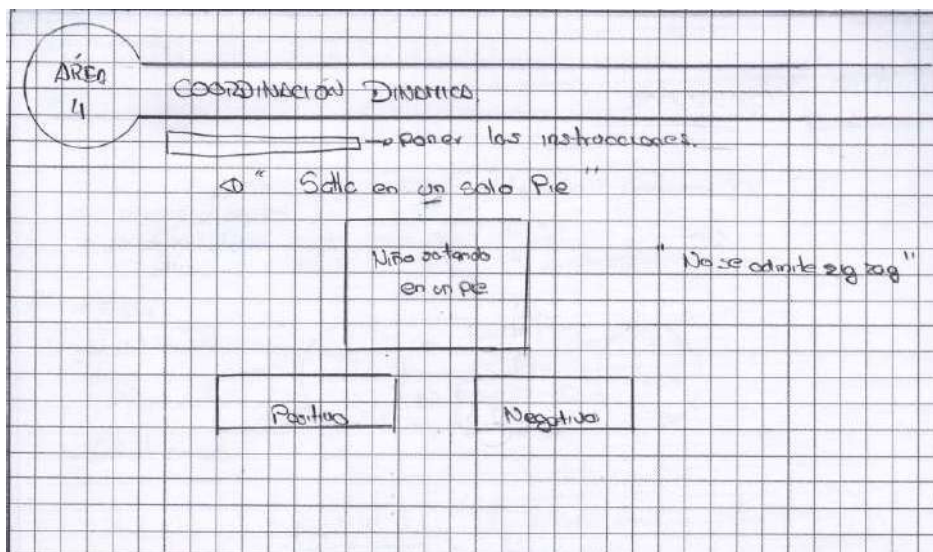 ÁREA
4
COORDINACIÓN DINAMICA.
poner las instrucciones.
" Salta en un solo Pie "
Niño saltando
en un pie
"No se admite zig zag"
Positivo
Negativo